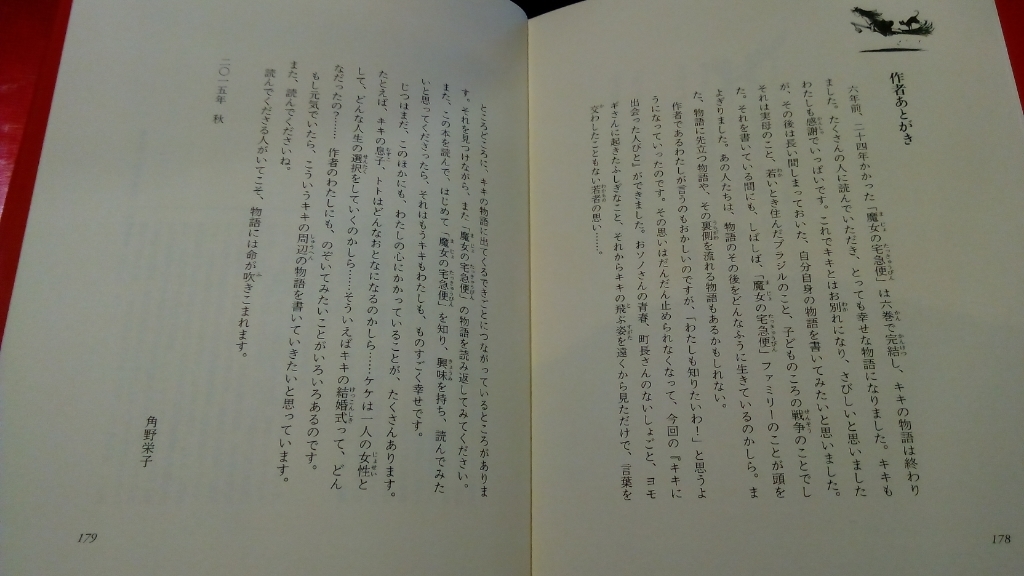 作者あとがき
六年前、二十四年かかった「魔女の宅急便」は六巻で完結し、キキの物語は終わり
ました。たくさんの人に読んでいただき、とっても幸せな物語になりました。キキも
わたしも感謝でいっぱいです。これでキキとはお別れになり、さびしいと思いました
が、その後は長い間しまっておいた、自分自身の物語を書いてみたいと思いました。
それは実母のこと、若いとき住んだブラジルのこと、子どものころの戦争のことでし
た。それを書いている間にも、しばしば、「魔女の宅急便」ファミリーのことが頭を
よぎりました。あの人たちは、物語のその後をどんなふうに生きているのかしら。ま
た、物語に先立つ物語や、その裏側を流れる物語もあるかもしれない。
作者であるわたしが言うのもおかしいのですが、「わたしも知りたいわ！」と思うよ
うになっていったのです。その思いはだんだん止められなくなって、今回の『キキに
出会った人びと』ができました。おソノさんの青春、町長さんのないしょごと、ヨモ
ギさんに起きたふしぎなこと、それからキキの飛ぶ姿を遠くから見ただけで、言葉を
交わしたこともない若者の思い……。
178
ところどころに、キキの物語に出てくるできごとにつながっているところがありま
す。それを見つけながら、また「魔女の宅急便」の物語を読み返してみてください。
また、この本を読んで、はじめて「魔女の宅急便」を知り、興味を持ち、読んでみた
いと思ってくださったら、それはもうキキもわたしも、ものすごく幸せです。
じつはまだ、このほかにも、わたしの心にかかっていることが、たくさんあります。
たとえば、キキの息子、トトはどんなおとなになるのかしら……ケケは一人の女性と
して、どんな人生の選択をしていくのかしら……そういえばキキの結婚式って、どん
なだったの？……作者のわたしにも、のぞいてみたいことがいろいろあるのです。
もし元気でいたら、こういうキキの周辺の物語を書いていきたいと思っています。
また、読んでくださいね。
読んでくださる人がいてこそ、物語には命が吹きこまれます。
二〇一五年　秋
角野栄子
179